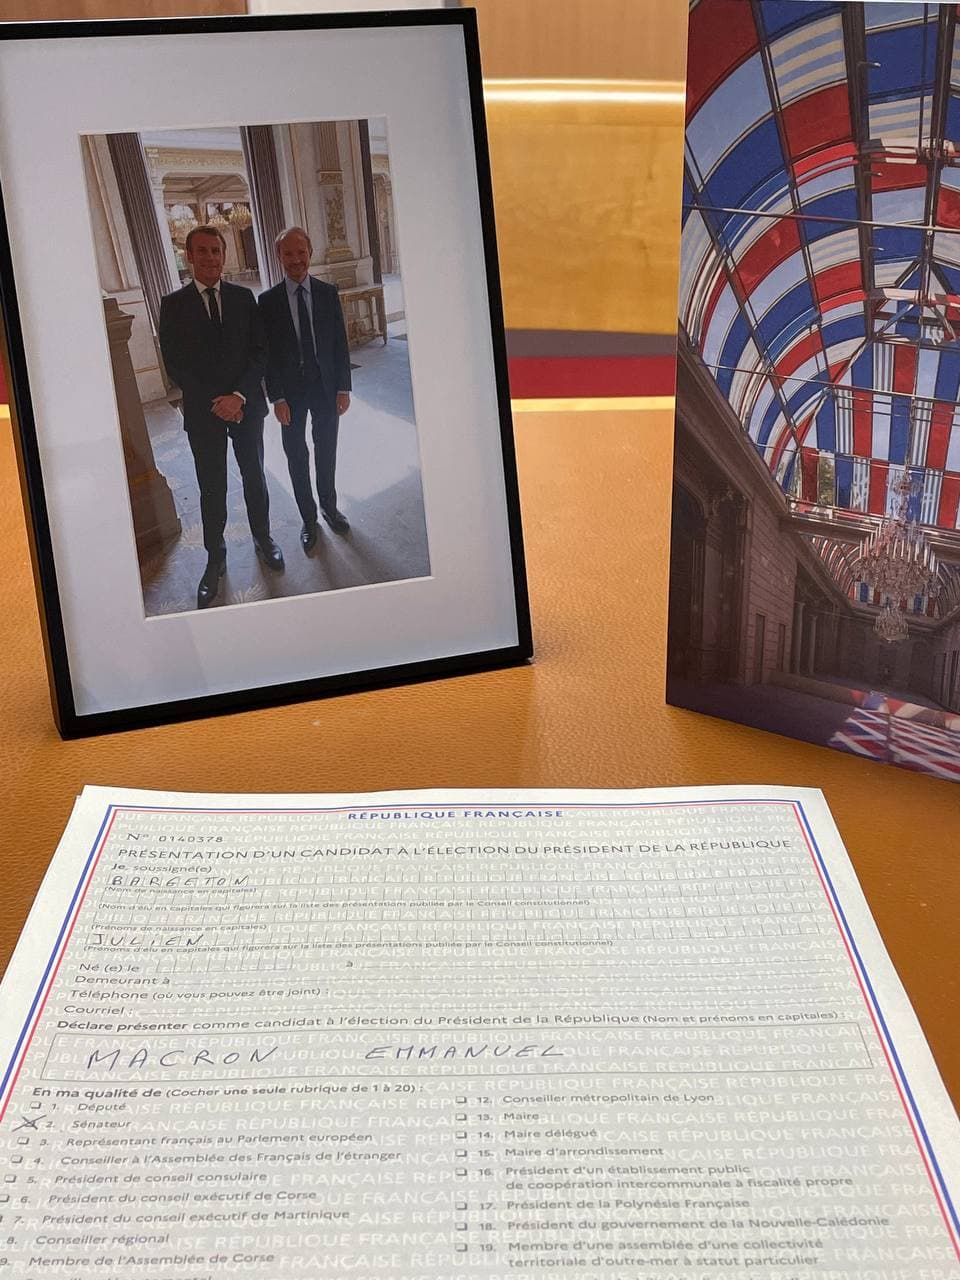 RÉPUBLIQUE FRANÇAISE
N° 0140378
PRÉSENTATION D'UN CANDIDAT À L'ÉLECTION DU PRÉSIDENT DE LA RÉPUBLIQUE
Je, soussigné(e)
BARGETON
(Nom de naissance en capitales)
(Nom d'élu en capitales qui figurera sur la liste des présentations publiée par le Conseil constitutionnel)
(Prénoms de naissance en capitales)
JULIEN
(Prénoms d'élu en capitales qui figurera sur la liste des présentations publiée par le Conseil constitutionnel)
Né (e) le à
Demeurant à
Téléphone (où vous pouvez être joint) :
Courriel :
Déclare présenter comme candidat à l'élection du Président de la République (Nom et prénoms en capitales) :
MACRON EMMANUEL
En ma qualité de (Cocher une seule rubrique de 1 à 20) :
1. Député
2. Sénateur
3. Représentant français au Parlement européen
4. Conseiller à l'Assemblée des Français de l'étranger
5. Président de conseil consulaire
6. Président du conseil exécutif de Corse
7. Président du conseil exécutif de Martinique
8. Conseiller régional
9. Membre de l'Assemblée de Corse
12. Conseiller métropolitain de Lyon
13. Maire
14. Maire délégué
15. Maire d'arrondissement
16. Président d'un établissement public
de coopération intercommunale à fiscalité propre
17. Président de la Polynésie Française
18. Président du gouvernement de la Nouvelle-Calédonie
19. Membre d'une assemblée d'une collectivité
territoriale d'outre-mer à statut particulier